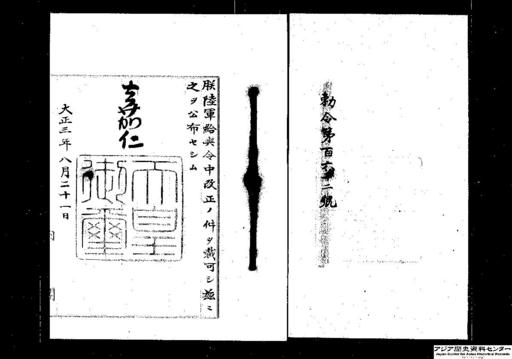 勅令第百 二號
朕陸軍給與令中改正ノ件ヲ裁可シ茲ニ
之ヲ公布セシム
嘉仁
天皇御璽
大正三年八月二十一日
内閣
アジア歴史資料センター
Japan Center for Asian Historical Records